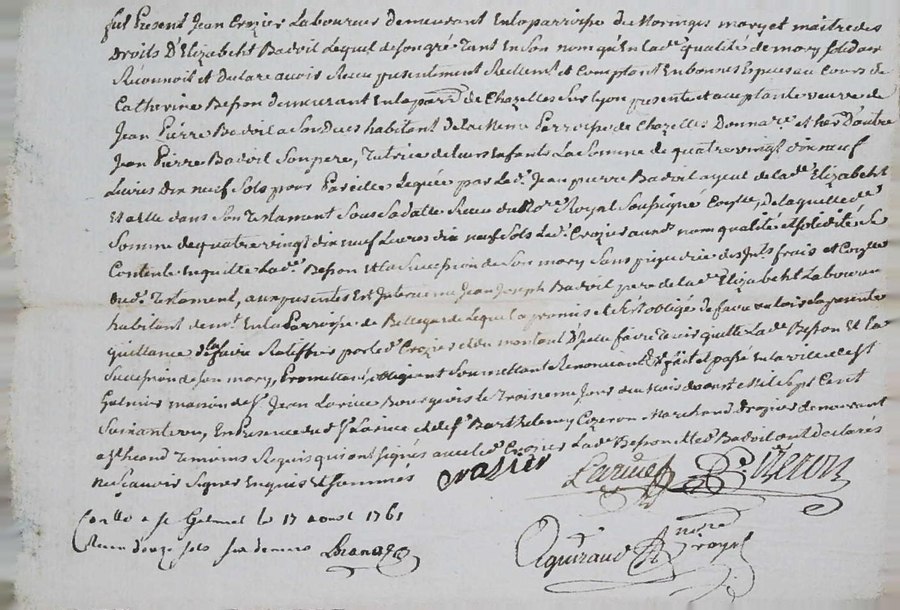 fut Present Jean Crozier Laboureur demeurant En la parroisse de Maringes mary et maitre des
Droits D'Elizabeht Badoil Lequel de son gré tant En son nom qu'En lade qualité de mary solidair
Reconnoit et Declare avoir Receu presentement Reellemt et Comptant En bonnes Espesces au Cours de
Catherine Besson demeurant En la parrse de Chazelles sur Lyon presente et acceptante veuve de
Jean Pierre Badoil a son deces habitant de la Parroisse de Chazelles Donnare et here D'autre
Jean Pierre Badoil son pere, Tutrice de leurs Enfants La somme de quatre vingt dix neuf
Livres dix neuf sols pour Pareille Leguée par led. Jean pierre Badoil ayeul de lade Elizabeht
Badoil dans son Testament sous sa datte Receu du Nore Royal soussigné, de laquelle de
somme de quatre vingt dix neuf Livres dix neuf sols Led. Crozier aud. nom qualité et solidité se
Contente En quitte Lade. Besson et la succession de son mary sans prejudice des frais et
dud. Testament, aux presentes Est Intervenu Jean Joseph Badoil pere de lade Elizabeht Laboureur
habitant demt. En la Parroisse de Bellegarde Lequel a promis et s'est obligé de faire valoir la presente
quittance la faire Ratiffier par led. Crozier et d'En faire tenir quitte Lade Besson Et la
succession de son mary, Promettant obligeant soumettant Renonçant fait et passé En la ville de St
Galmier maison de Sr. Jean Larive Bourgeois le Troisieme Jour du Mois d'aoust Mil sept Cent
soixante un, En presence dud. Sr. Larive et de Sr Barthelemy Cozeron Marchand drogier demeurant
Temoins Requis qui ont signés avec led. Crozier Lade Besson et led Badoil ont declarés
ne sçavoir signer Enquis Et sommés Crozier Larive Cozeron
Conllé a St Galmier le 17 aoust 1761
Receu douze sols six deniers
Aguiraud nore royal